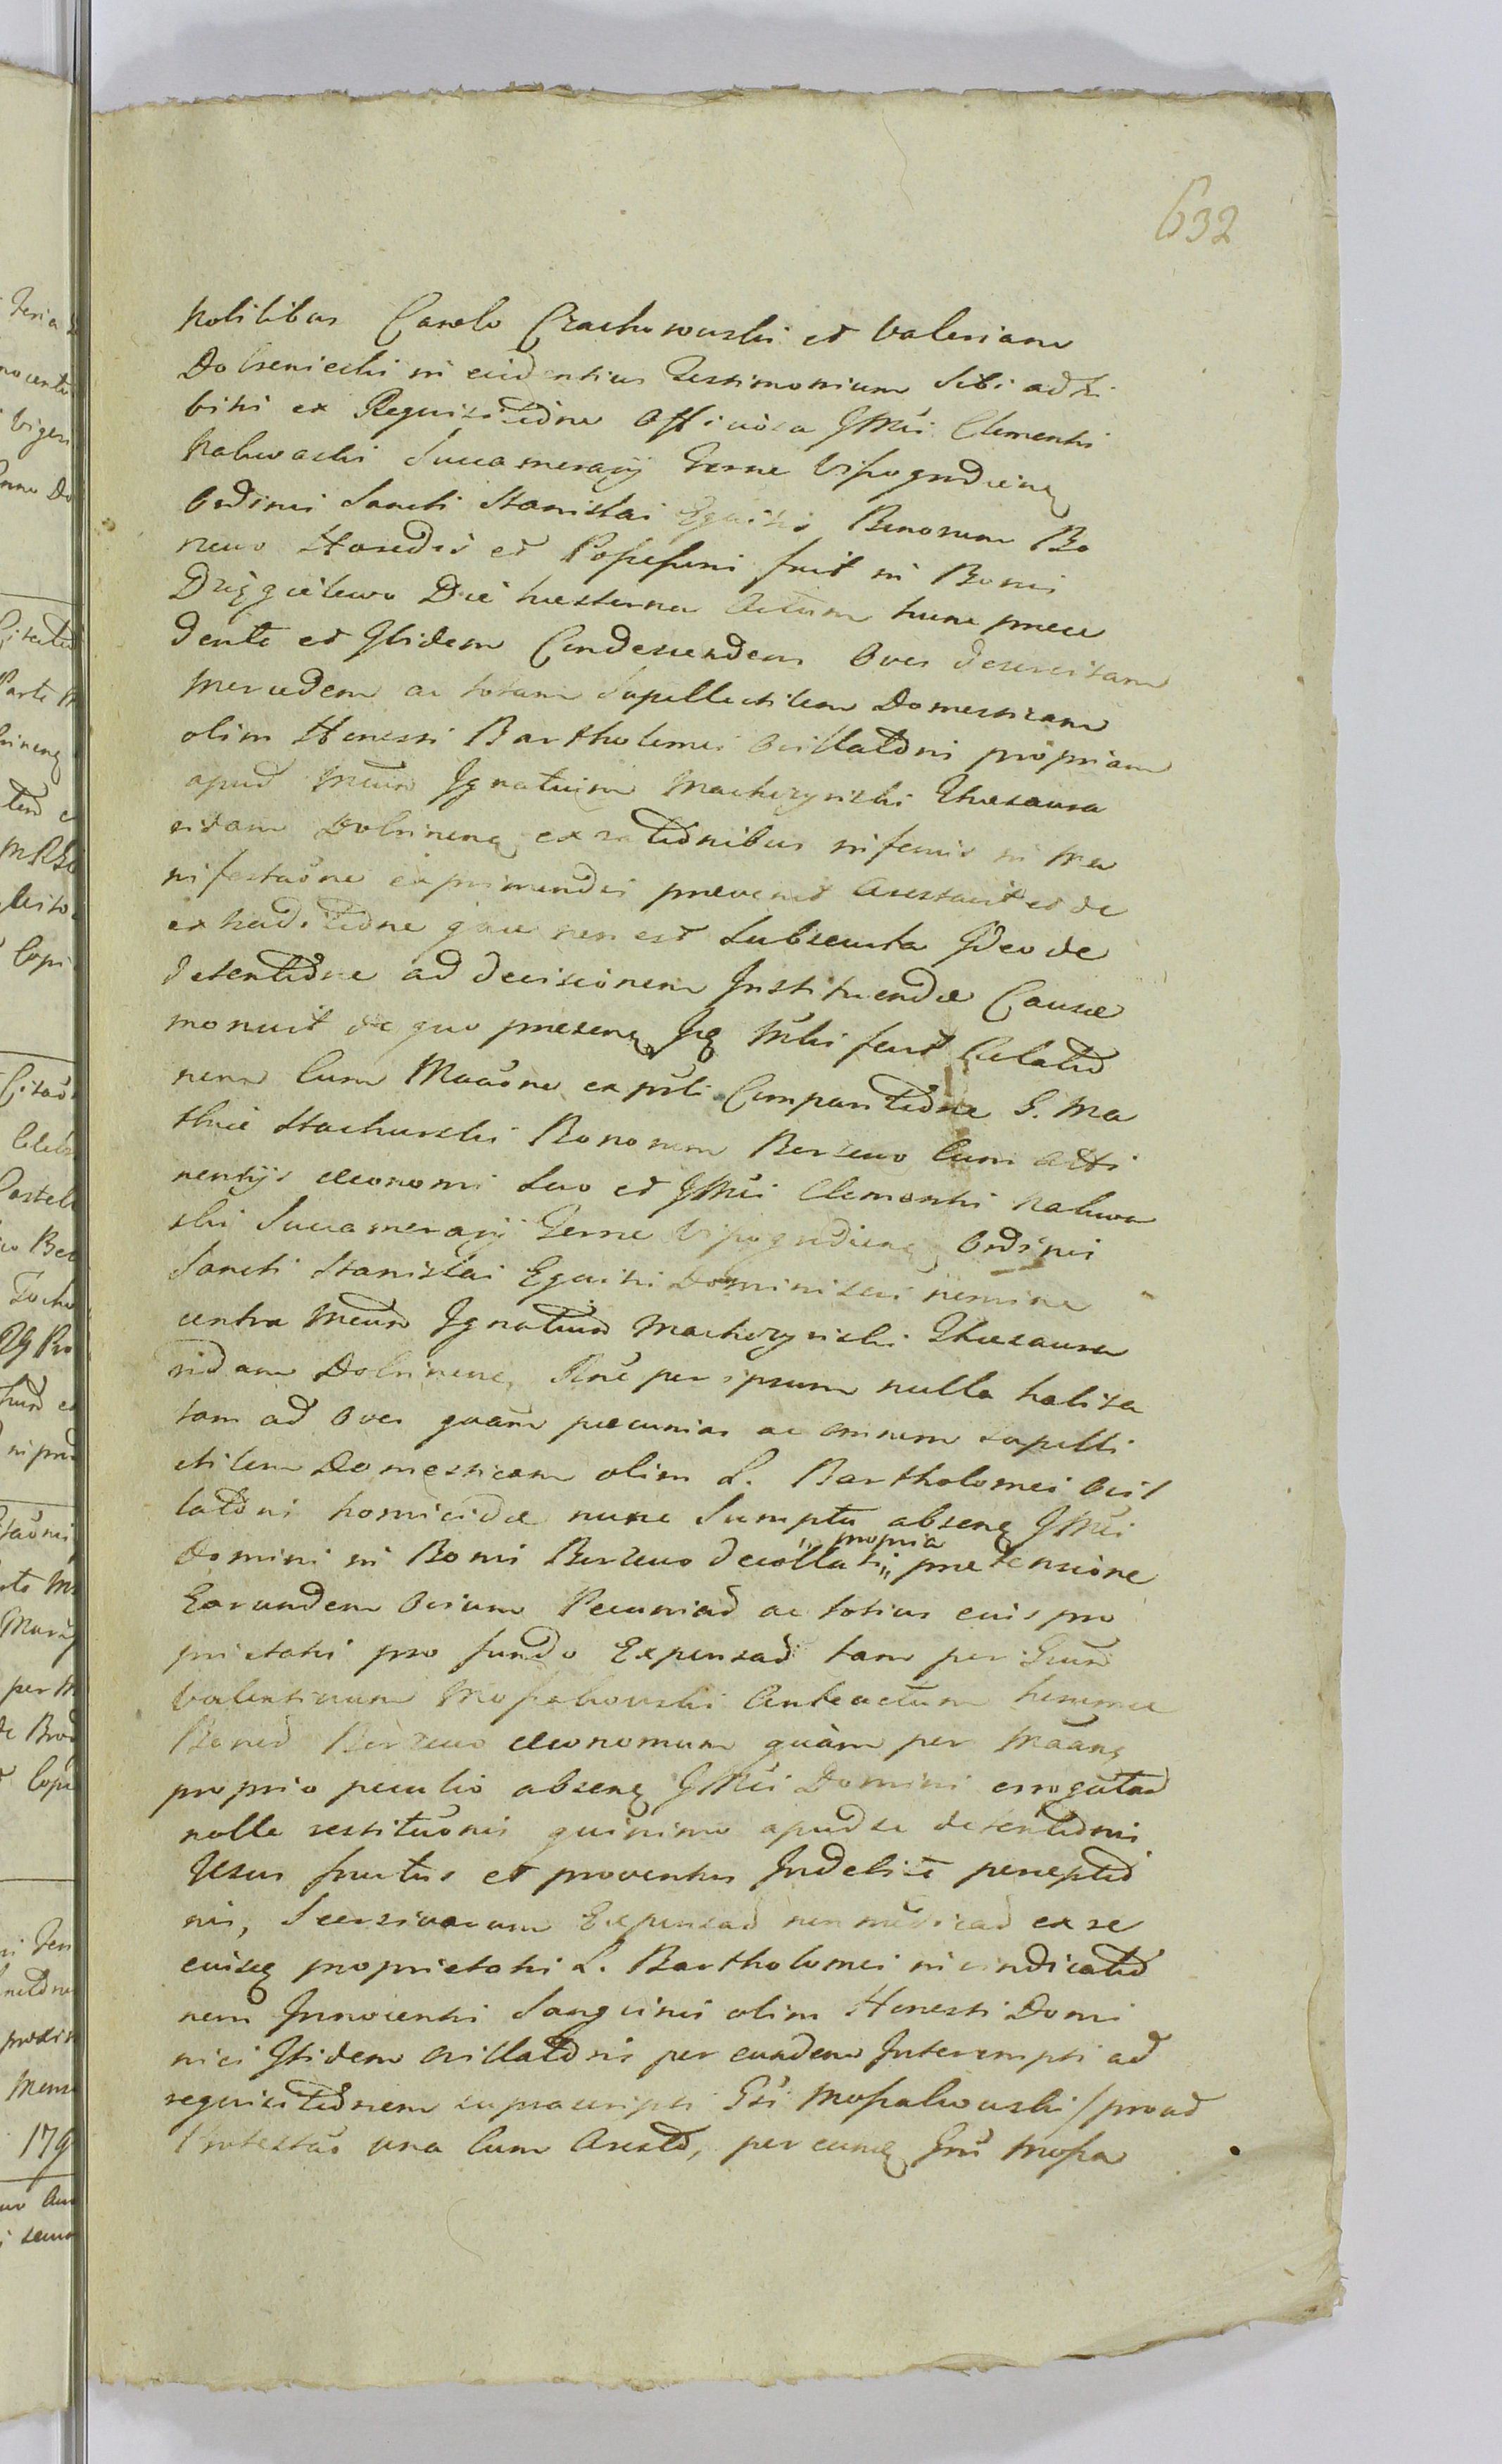 632
Nobilibus Carolo Czachorowski et Valeriano
Dobrzeniecki in evidentius Testimonium Sibi adhi
bitis ex Requisitione Officiosa Illris Clementis
Nakwaski Succamerarij Terrae Vissogrudiens
Ordinis Sancti Stanislai Equitis Bonorum Bo
rzewo Haeredis et Possessoris fuit in Bonis
Dzięgielewo Die hesterna Actum hunc praece
dente et Ibidem Condescendens Oves deservitam
Mercedem ac totam Supellectilem Domesticam
olim Honesti Bartholomei Ovillatoris propriam
apud Mcum Ignatium Machczynski Thesaura
ridam Dobrinens ex rationibus inferius in Ma
nifestaone exprimendis praevenit Arestavit et de
extraditione quae non est Subsecuta Ideo de
detentione ad decisionem Instituendae Causae
monuit de quo praesens Jq Mihi fecit Relatio
nem Cum Maaone ex parti Comparitione G. Ma
thiae Stachurski Bonorum Borzewo Cum Atti
nentijs Oeconomi Suo et Illris Clementis Nakwa
ski Succamerarij Terrae Vissogrudiens Ordinis
Sancti Stanislai Equitis Domini sui nomine
contra Mcum Ignatium Machczynski Thesaura
ridam Dobrinens, Rne per ipsum nulla habita
tam ad Oves quam pecunias ac omnem supelle
ctilem Domesticam olim L. Bartholomei Ovil
latoris homicidae nunc Sumptu absens Illris
Domini in Bonis Borzewo decollati „ propria „ praetensione
Earundem Ovium Pecuniar ac totius eius pro
prietatis pro fundo Expensar tam per Gum
Valentinum Mossakowski Anteactum hemmae
Bonor Borzewo Oeconomum quam per Maans
proprio peculio absens Illris Domini errogatar
nolle restituonis quinimo apud se detentionis
Usus fructus et proventus Indebite perceptio
nis, Secesivarum Expensar non modicar ex se
eiusq proprietatis L. Bartholomei in vindicatio
nem Innocentis Sanguinis olim Honesti Domi
nici Itidem Ovillatoris per eundem Interempti ad
requisitionem suprascripti Gsi Mossakowski / prout
Protestao una Cum Arestо, per eumq Gm Mossa